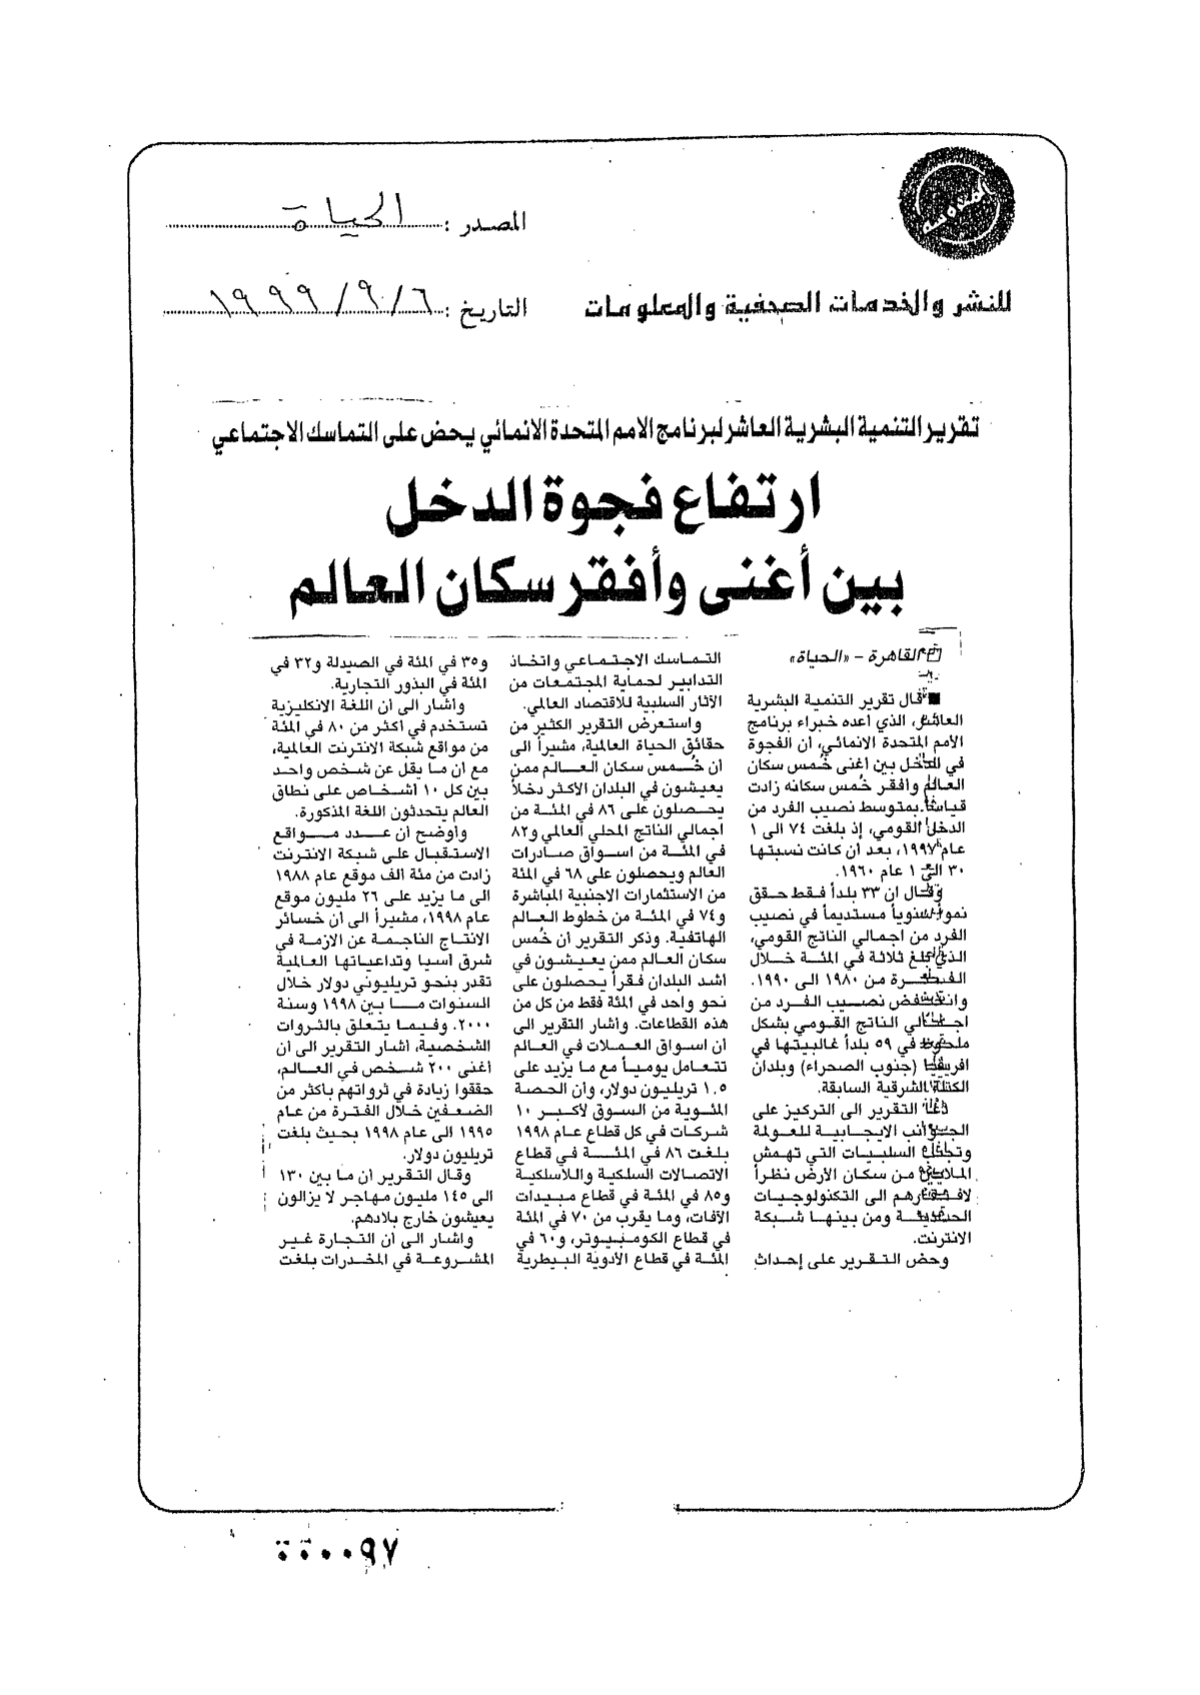 المصدر : الحياة
للنشر والخدمات الصحفية والمعلومات
التاريخ : ٦/ ٩/ ١٩٩٩
تقرير التنمية البشرية العاشر لبرنامج الامم المتحدة الانمائي يحض على التماسك الاجتماعي
ارتفاع فجوة الدخل
بين أغنى وأفقر سكان العالم
القاهرة – «الحياة»
■ قال تقرير التنمية البشرية
العاشر، الذي اعده خبراء برنامج
الأمم المتحدة الانمائي، ان الفجوة
في الدخل بين أغنى خُمس سكان
العالم وافقر خُمس سكانه زادت
قياساً بمتوسط نصيب الفرد من
الدخل القومي، إذ بلغت ٧٤ الى ١
عام ١٩٩٧، بعد ان كانت نسبتها
٣٠ الى ١ عام ١٩٦٠.
وقال ان ٣٣ بلداً فقط حقق
نمواً سنوياً مستديماً في نصيب
الفرد من اجمالي الناتج القومي،
الذي بلغ ثلاثة في المئة خلال
الفترة من ١٩٨٠ الى ١٩٩٠.
وانخفض نصيب الفرد من
اجمالي الناتج القومي بشكل
ملحوظ في ٥٩ بلداً غالبيتها في
افريقيا (جنوب الصحراء) وبلدان
الكتلة الشرقية السابقة.
دعا التقرير الى التركيز على
الجوانب الايجابية للعولمة
وتجاهل السلبيات التي تهمش
الملايين من سكان الأرض نظراً
لافتقارهم الى التكنولوجيات
الحديثة ومن بينها شبكة
الانترنت.
وحض التقرير على إحداث
التماسك الاجتماعي واتخاذ
التدابير لحماية المجتمعات من
الآثار السلبية للاقتصاد العالمي.
واستعرض التقرير الكثير من
حقائق الحياة العالمية، مشيراً الى
ان خُمس سكان العالم ممن
يعيشون في البلدان الأكثر دخلاً
يحصلون على ٨٦ في المئة من
اجمالي الناتج المحلي العالمي و٨٢
في المئة من اسواق صادرات
العالم ويحصلون على ٦٨ في المئة
من الاستثمارات الاجنبية المباشرة
و٧٤ في المئة من خطوط العالم
الهاتفية. وذكر التقرير أن خُمس
سكان العالم ممن يعيشون في
اشد البلدان فقراً يحصلون على
نحو واحد في المئة فقط من كل من
هذه القطاعات. وأشار التقرير الى
ان اسواق العملات في العالم
تتعامل يومياً مع ما يزيد على
١.٥ تريليون دولار، وأن الحصة
المئوية من السوق لأكبر ١٠
شركات في كل قطاع عام ١٩٩٨
بلغت ٨٦ في المئة في قطاع
الاتصالات السلكية واللاسلكية
و٨٥ في المئة في قطاع مبيدات
الآفات، وما يقرب من ٧٠ في المئة
في قطاع الكومبيوتر، و٦٠ في
المئة في قطاع الأدوية البيطرية
و٣٥ في المئة في الصيدلة و٣٢ في
المئة في البذور التجارية.
وأشار الى ان اللغة الانكليزية
تستخدم في اكثر من ٨٠ في المئة
من مواقع شبكة الانترنت العالمية،
مع ان ما يقل عن شخص واحد
بين كل ١٠ أشخاص على نطاق
العالم يتحدثون اللغة المذكورة.
وأوضح أن عدد مواقع
الاستقبال على شبكة الانترنت
زادت من مئة الف موقع عام ١٩٨٨
الى ما يزيد على ٢٦ مليون موقع
عام ١٩٩٨، مشيراً الى ان خسائر
الانتاج الناجمة عن الازمة في
شرق آسيا وتداعياتها العالمية
تقدر بنحو تريليوني دولار خلال
السنوات ما بين ١٩٩٨ وسنة
٢٠٠٠. وفيما يتعلق بالثروات
الشخصية، أشار التقرير الى ان
أغنى ٢٠٠ شخص في العالم،
حققوا زيادة في ثرواتهم بأكثر من
الضعفين خلال الفترة من عام
١٩٩٥ الى عام ١٩٩٨ بحيث بلغت
تريليون دولار.
وقال التقرير ان ما بين ١٣٠
الى ١٤٥ مليون مهاجر لا يزالون
يعيشون خارج بلادهم.
واشار الى ان التجارة غير
المشروعة في المخدرات بلغت